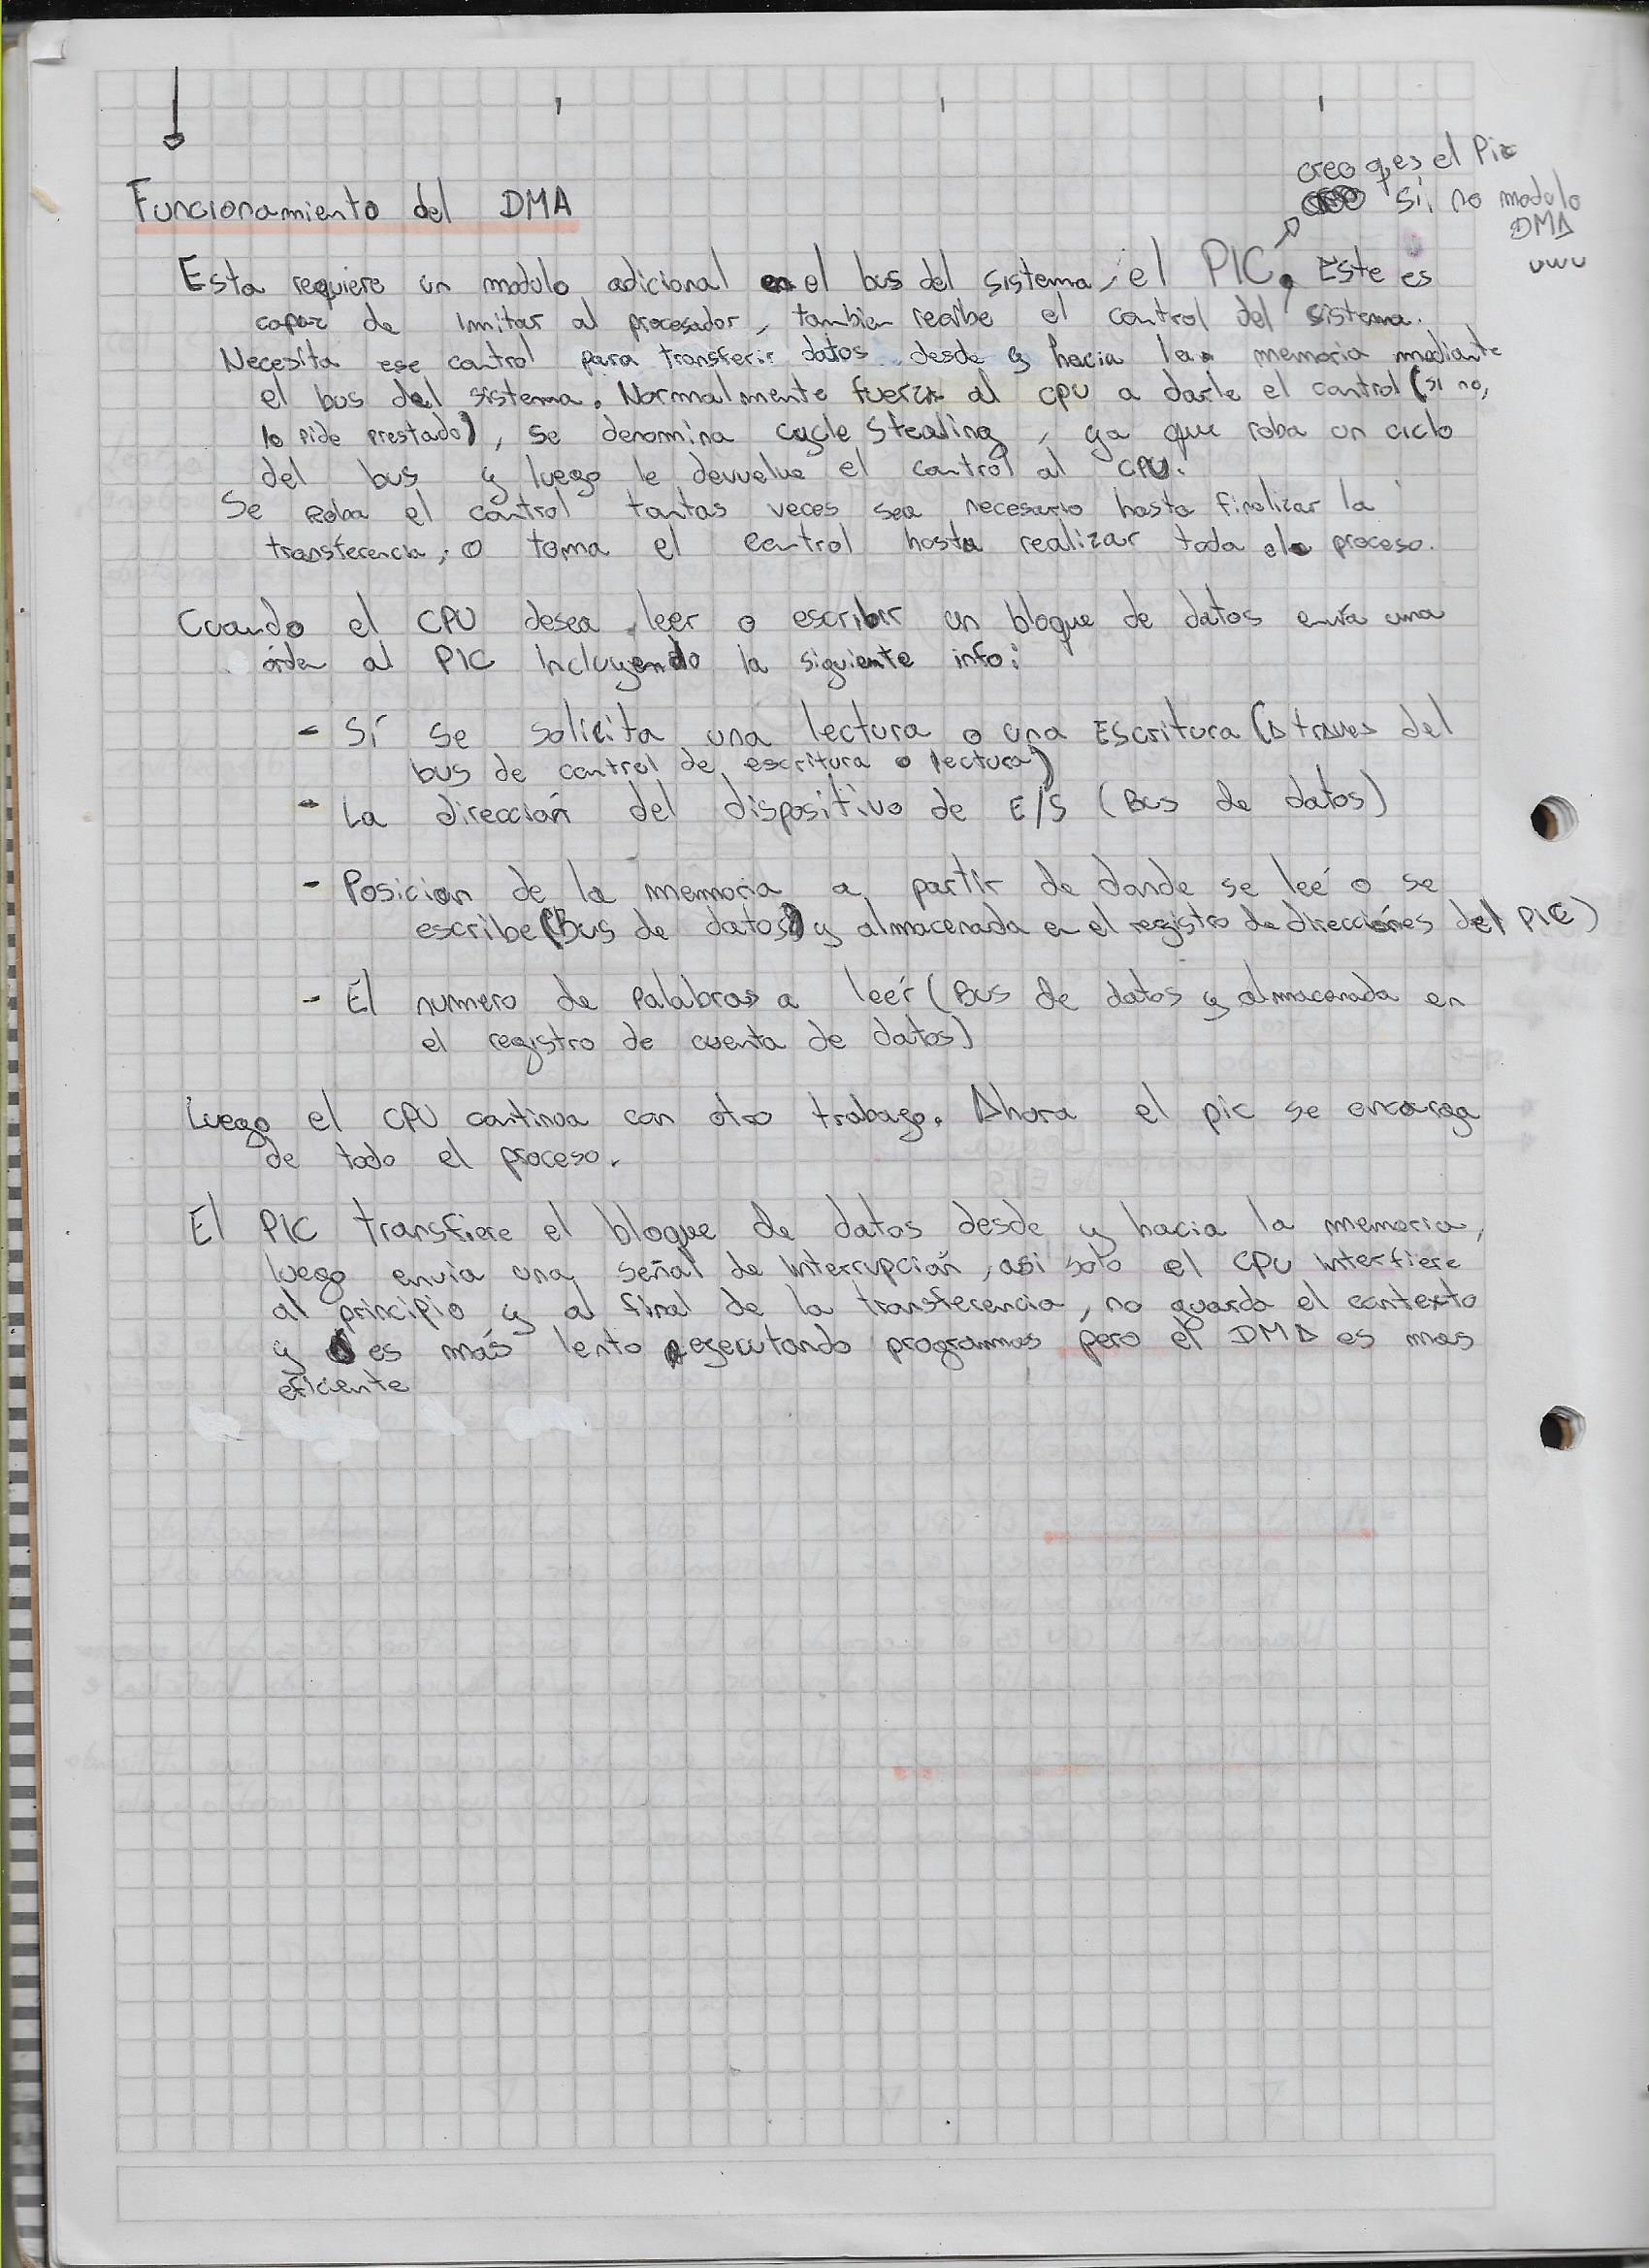 creo q es el Pic
Si, no modulo
DMA
uwu
Funcionamiento del DMA
Esta requiere un modulo adicional en el bus del sistema, el PIC. Este es
capaz de imitar al procesador, tambien recibe el control del sistema.
Necesita ese control para transferir datos desde y hacia la memoria mediante
el bus del sistema. Normalmente fuerza al CPU a darle el control (si no,
lo pide prestado), se denomina cycle stealing, ya que roba un ciclo
del bus y luego le devuelve el control al CPU.
Se Roba el control tantas veces sea necesario hasta finalizar la
transferencia, o toma el control hasta realizar todo el proceso.
Cuando el CPU desea leer o escribir un bloque de datos envía una
órden al PIC Incluyendo la siguiente info:
- Sí se solicita una lectura o una Escritura (A traves del
bus de control de escritura o lectura)
- La dirección del dispositivo de E/S (Bus de datos)
- Posicion de la memoria a partir de donde se leé o se
escribe (Bus de datos) y almacenada en el registro de direcciónes del PIC)
- El numero de Palabras a leér (Bus de datos y almacenada en
el registro de cuenta de datos)
Luego el CPU continua con otro trabajo. Ahora el pic se encarga
de todo el proceso.
El PIC transfiere el bloque de datos desde y hacia la memoria,
luego envia una señal de Interrupción, asi solo el CPU Interfiere
al principio y al final de la transferencia, no guarda el contexto
y es más lento ejecutando programas pero el DMA es mas
eficiente